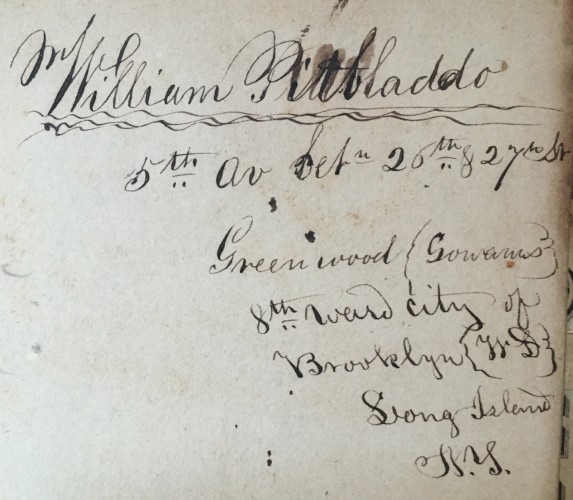 Mr William Pitbladdo
5th av betn 26th & 27th St
Greenwood {Gowanus}
8th ward city of
Brooklyn {W D}
Long Island
N.Y.